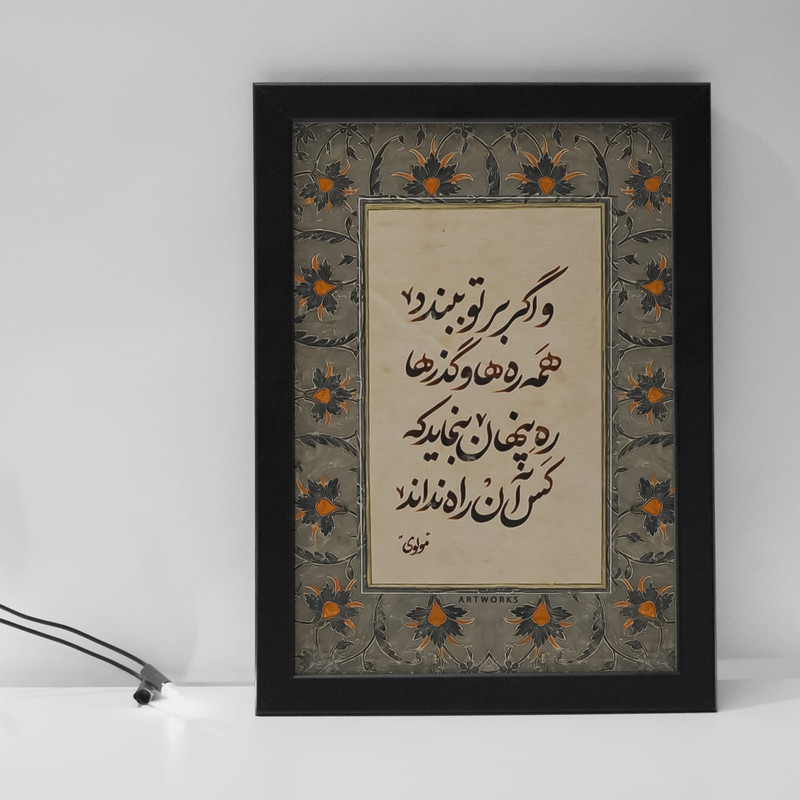 و اگر بر تو ببندد
همه ره‌ها و گذرها
ره پنهان بنماید که
کس آن راه نداند
مولوی
ARTWORKS